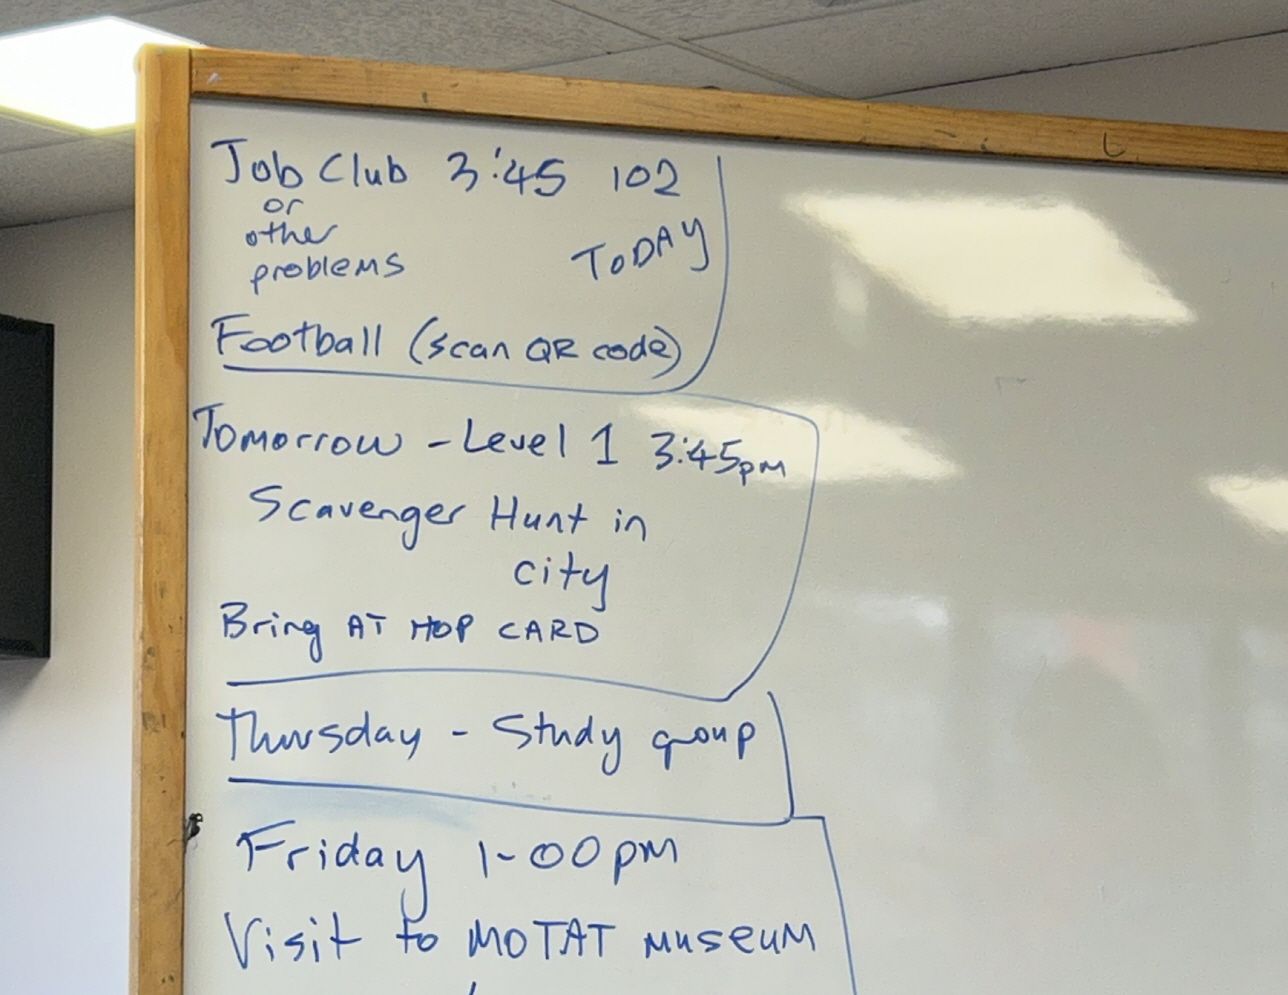 Job Club 3:45 102
or
other
problems
TODAY
Football (scan QR code)
Tomorrow - Level 1 3:45pm
Scavenger Hunt in
city
Bring AT HOP CARD
Thursday - Study group
Friday 1-00pm
Visit to MOTAT museum